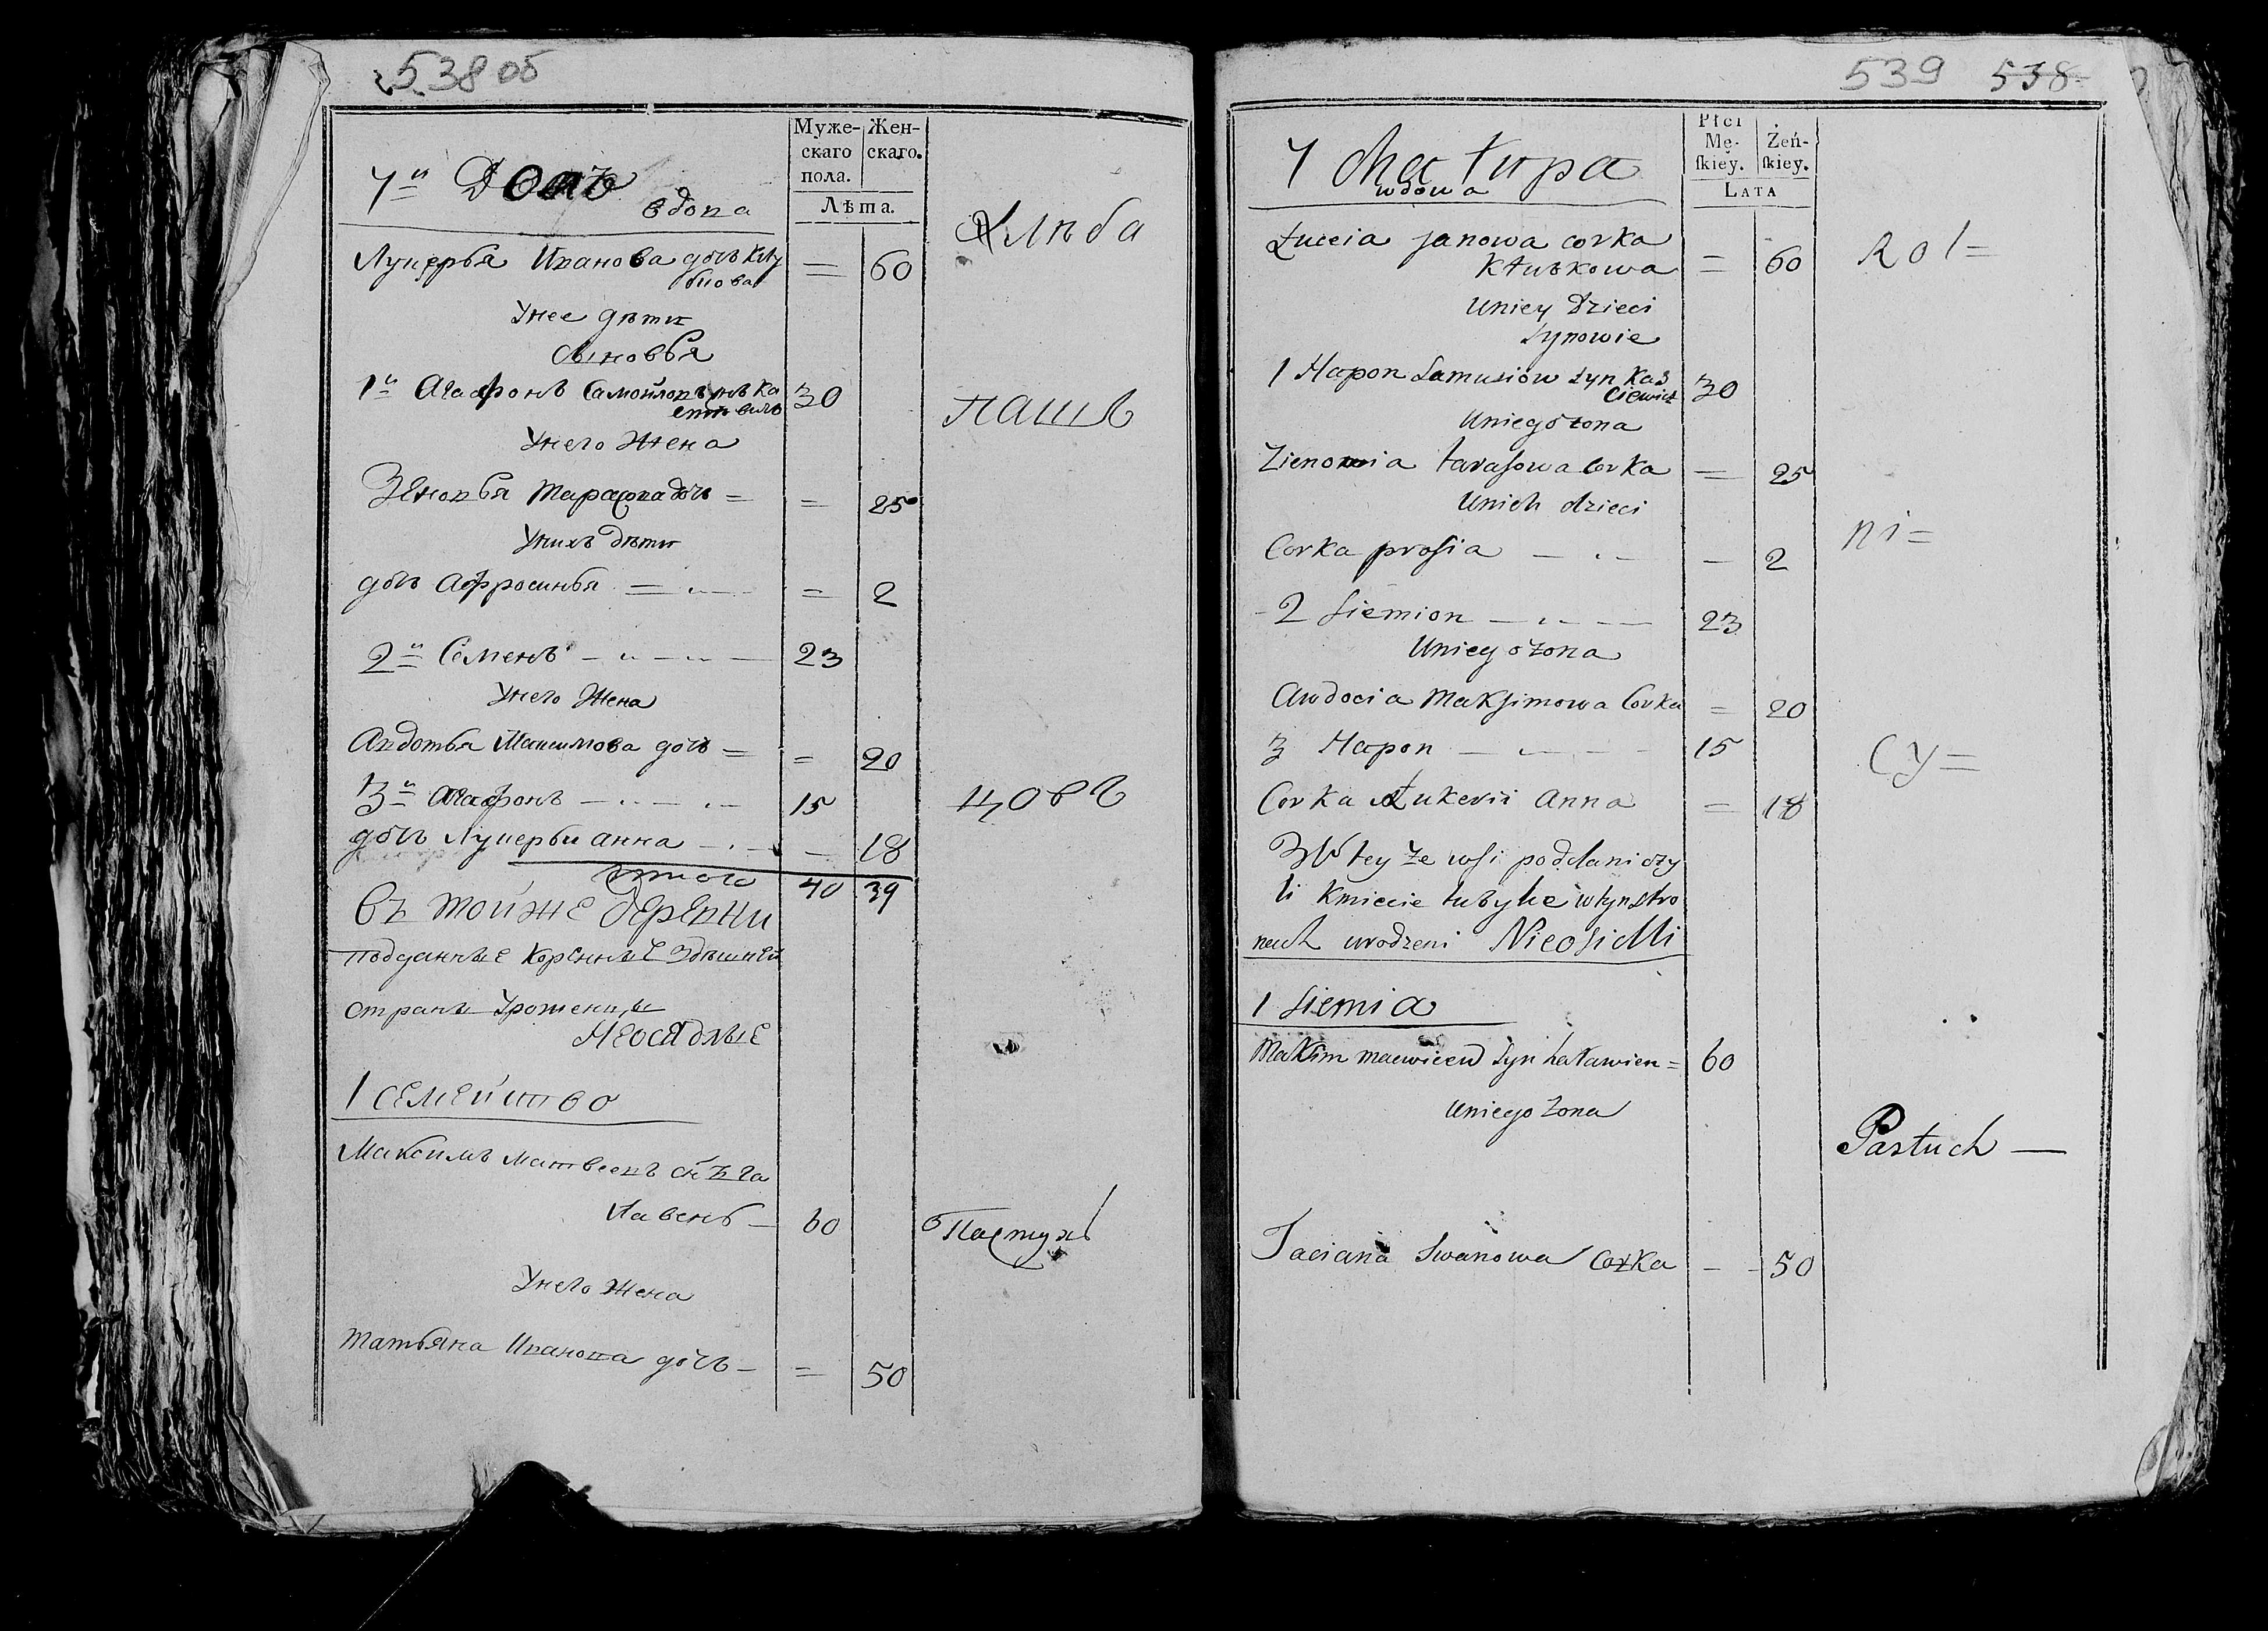 538 об
Муже-
скаго
пола.
Жен-
скаго.
Лѣта.
7й Домъ
вдова
Хлѣба
Лукерья Иванова дочь Клу
бкова = 60
У нее дѣти
Сыновья
1й Агафонъ Самойловъ снъ Ка
30
У него жена
пашъ
Зѣновья Тарасова дочь = = 25
У нихъ дѣти
дочь Афросинья = = 2
2й Семенъ 23
У него жена
Авдотья Максимова дочь = = 20
3й Агафонъ 15
цовъ
дочь Лукерьи анна — 18
итого 40 39
въ той же деревни
подданные коренные здѣшней
страны Урожѣнцы
неосядлые
1 семейство
Максимъ Матвеевъ снъ Га
лавень 60
Пастухъ
У него жена
Татьяна Иванова дочь = 50
539 538
Płci
Mę-
ſkiey.
Żeń-
ſkiey.
LATA
7 chałupa
wdowa
Łuccia janowa corka
Kłubkowa = 60
Rol=
Uniey Dzieci
Synowie
1 Hapon Samusiow syn Kas
ciewicz 30
Uniego żona
Zienowia tarasowa Corka — 25
Unich dzieci
Corka prosia — 2
ni=
2 Siemion 23
Uniego żona
Awdocia Maksimowa Corka = 20
3 Hapon 15
cy=
Corka Łukerii Anna = 18
W tey że wsi poddani czy
li Kmiecie tubylce w tyn stro
nach urodzeni Nieosidli
1 Siemia
Maksim macwieew syn haławien = 60
Uniego Żona
Pastuch —
Taciana Iwanowa Corka — 50